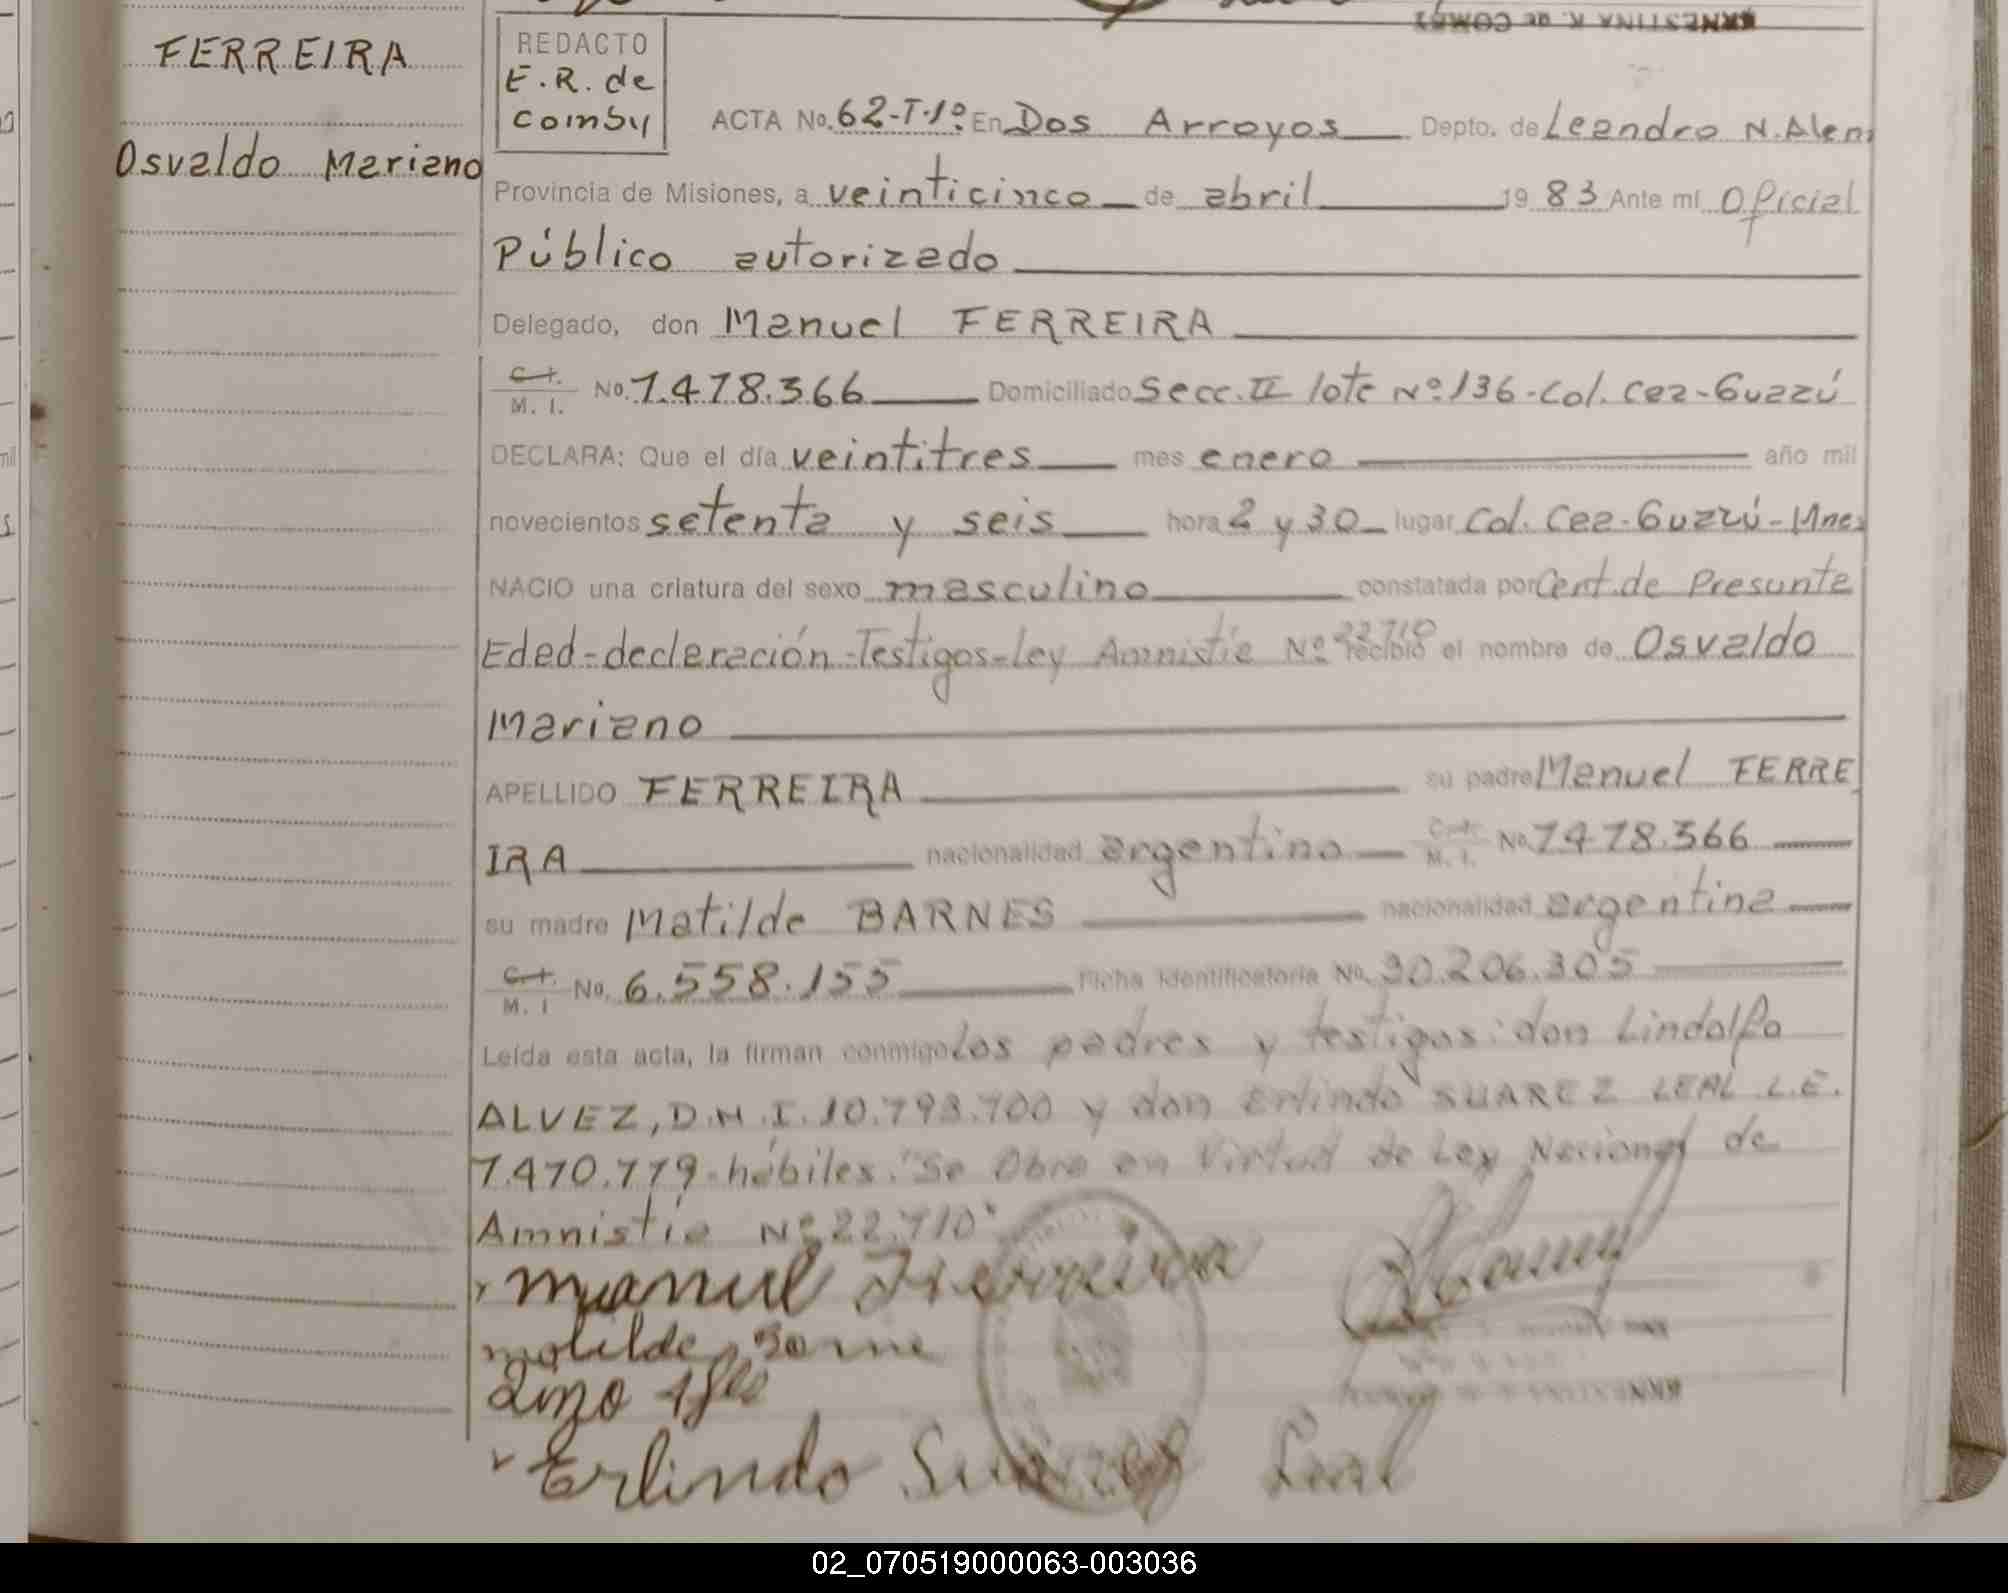 ERNESTINA R. de GOMEZ
FERREIRA
Osvaldo Mariano
REDACTO
E.R. de
Coinby
ACTA No. 62-T-1º En Dos Arroyos Depto. de Leandro N. Alem
Provincia de Misiones, a veinticinco de abril 1983 Ante mí Oficial
Público autorizado
Delegado, don Manuel FERREIRA
C.I. M. I. No. 7.478.366 Domiciliado Secc. II lote Nº 136-Col. Caa-Guazzú
DECLARA: Que el día veintitres mes enero año mil
novecientos setenta y seis hora 2 y 30 lugar Col. Caa-Guazzú-Mnes
NACIO una criatura del sexo masculino constatada por Cert. de Presunta
Edad-declaración-Testigos-Ley Amnistía Nº 22.710 recibió el nombre de Osvaldo
Mariano
APELLIDO FERREIRA su padre Manuel FERRE
IRA nacionalidad argentino M. I. No. 7.478.366
su madre Matilde BARNES nacionalidad argentina
C.I. M. I No. 6.558.155 Ficha Identificatoria No. 30.206.305
Leída esta acta, la firman conmigo Los padres y testigos: don Lindolfo
ALVEZ, D.N.I. 10.793.700 y don Erlindo SUAREZ LEAL L.E.
7.470.779-hábiles. "Se Obra en Virtud de Ley Nacional de
Amnistía Nº 22.710"
Manuel Ferreira
matilde Barne
Erlindo Suarez Leal
02_070519000063-003036